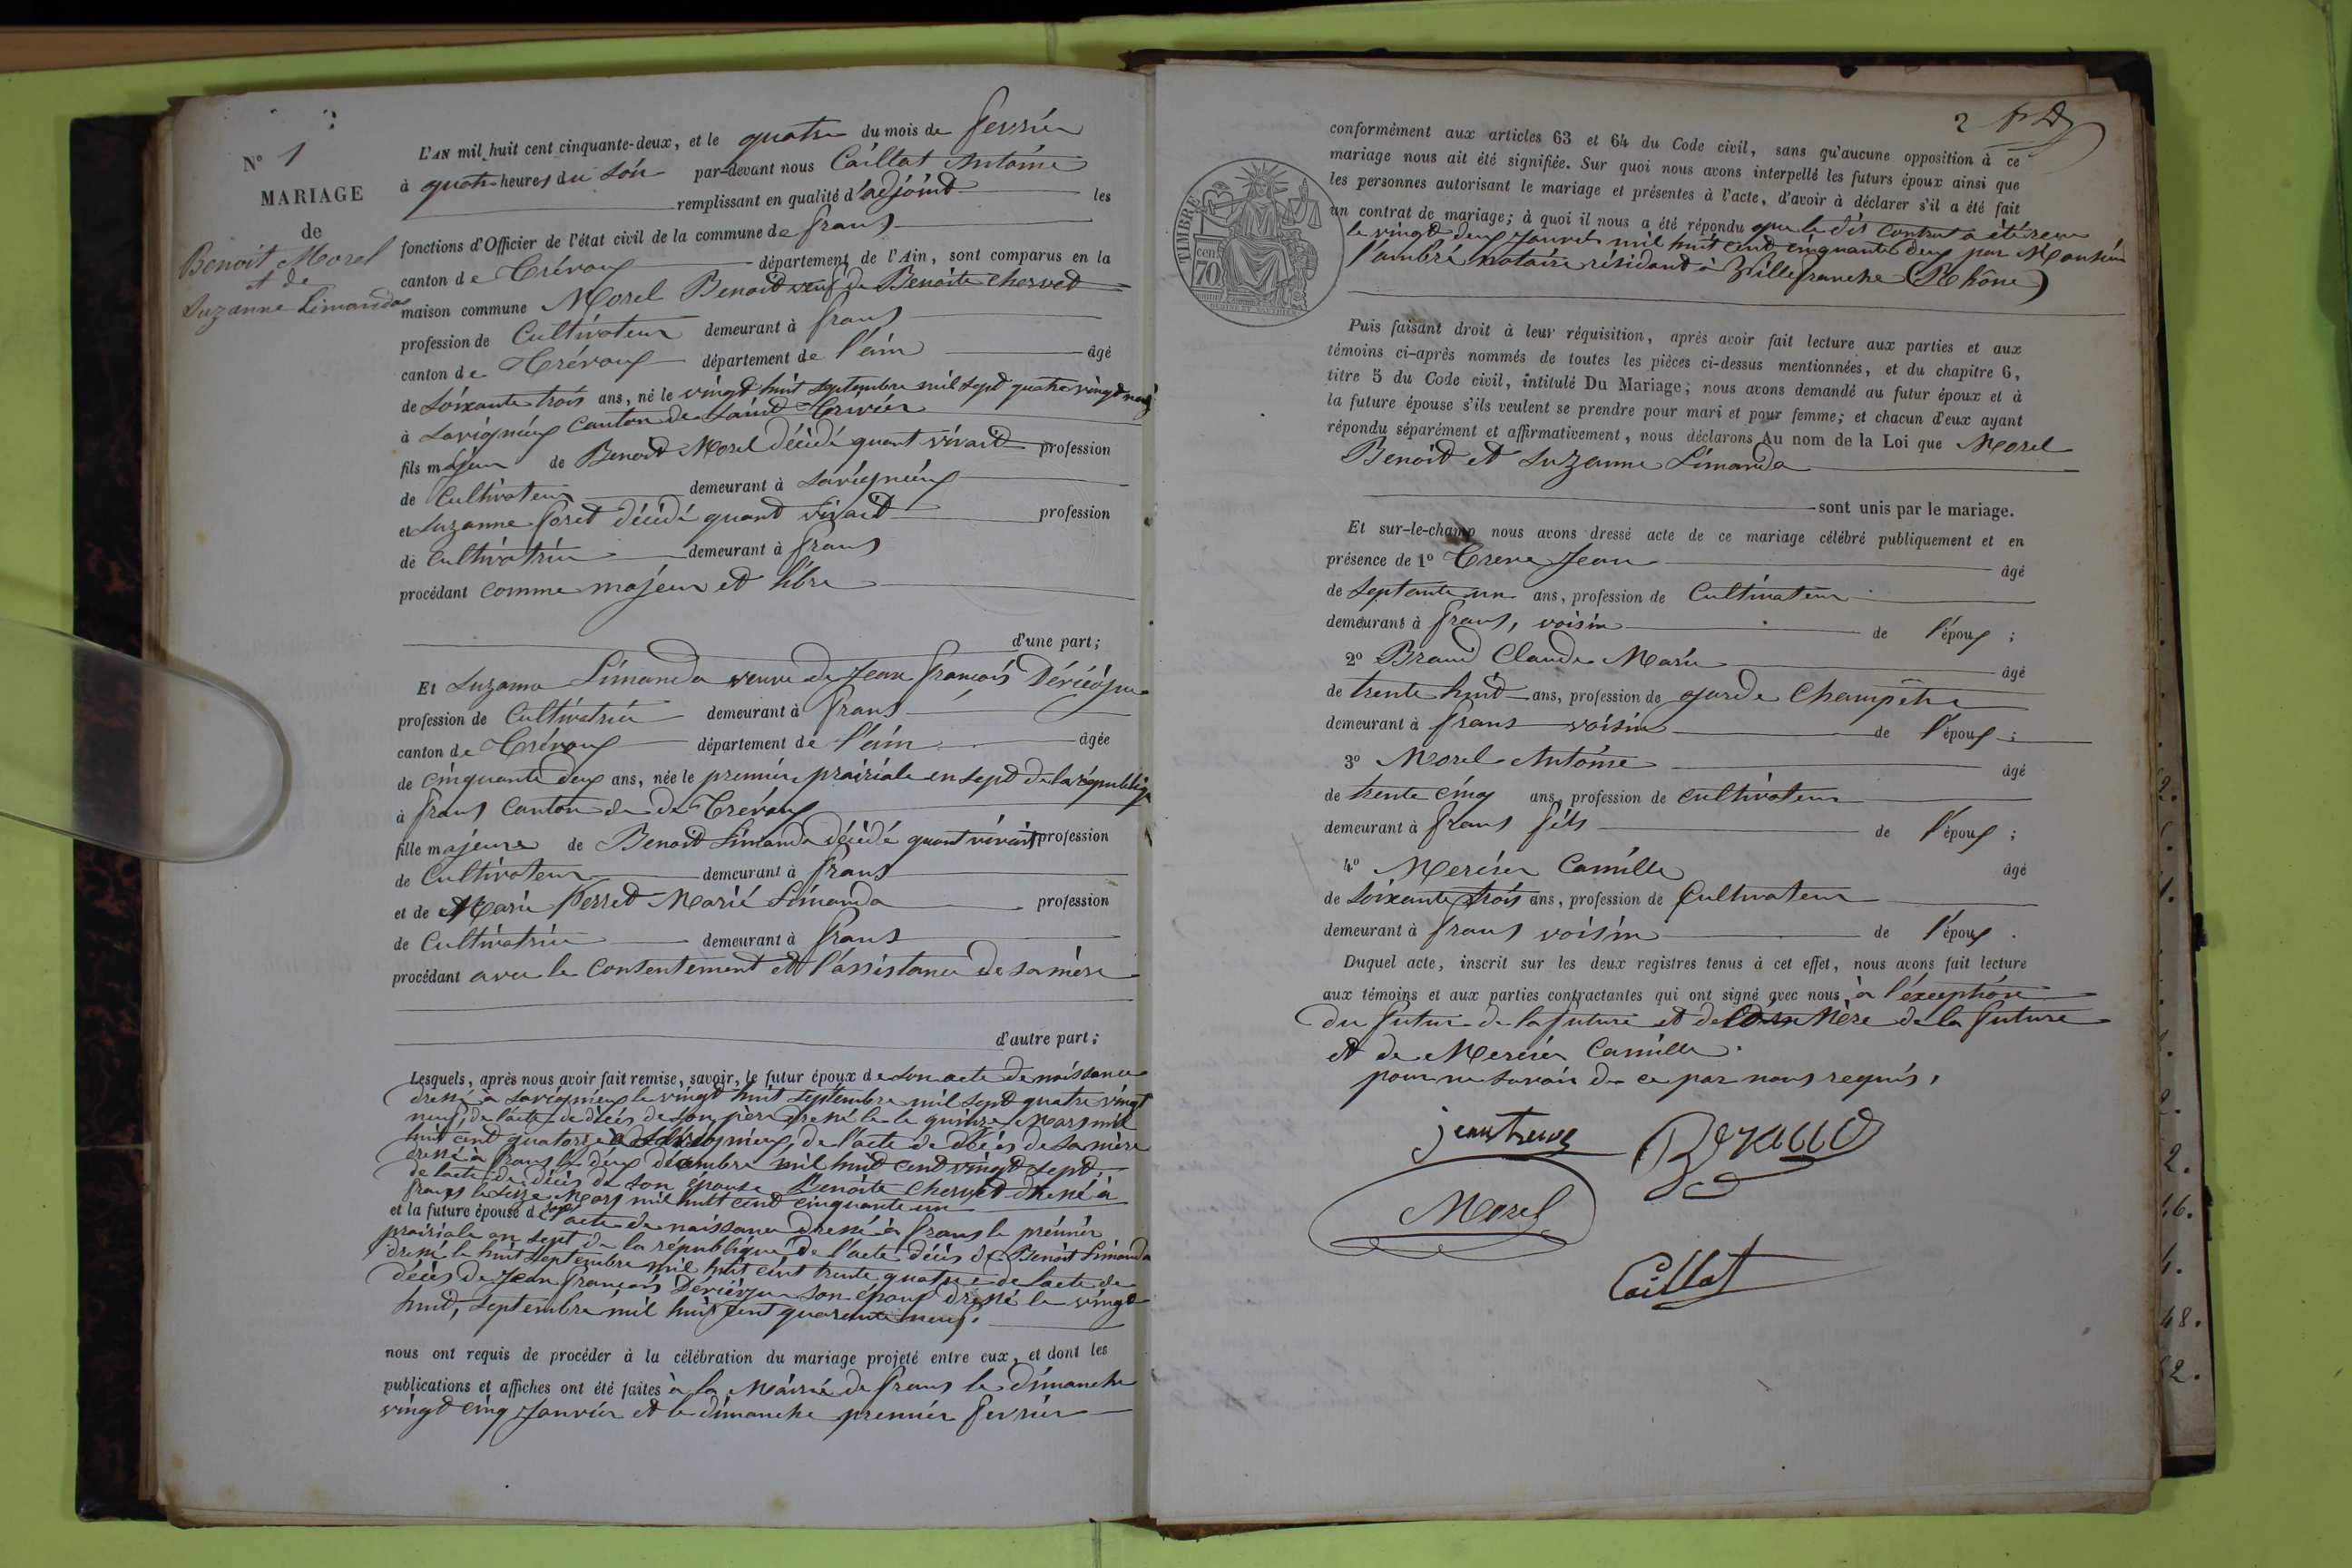 N° 1
MARIAGE
de
Benoit Morel
et de
Suzanne Limandas
L'AN mil huit cent cinquante-deux, et le quatre du mois de fevrier
à quatre heures du soir par-devant nous Caillat Antoine
remplissant en qualité d'adjoint les
fonctions d'Officier de l'état civil de la commune de frans
canton de Trévoux département de l'Ain, sont comparus en la
maison commune Morel Benoit veuf de Benoite Chervet
profession de Cultivateur demeurant à frans
canton de Trévoux département de l'ain âgé
de soixante trois ans, né le vingt huit septembre mil sept quatre vingt neuf
à Savigneux Canton de Saint Trivier
fils majeur de Benoit Morel décédé quant vivait profession
de Cultivateur demeurant à Savigneux
et Suzanne foret décédé quand vivait profession
de Cultivatrice demeurant à frans
procédant comme majeur et libre
d'une part;
Et Suzanne Limanda veuve de Jean françois
profession de Cultivatrice demeurant à frans
canton de Trévoux département de l'ain âgée
de cinquante deux ans, née le premier prairiale en sept de la république
à frans Canton de de Trévoux
fille majeure de Benoit Limanda décédé quant vivait profession
de Cultivateur demeurant à frans
et de Marie Perret Marié Limanda profession
de Cultivatrice demeurant à frans
procédant avec le consentement et l'assistance de sa mère
d'autre part;
Lesquels, après nous avoir fait remise, savoir, le futur époux de son acte de naissance
dressé a Savigneux le vingt huit septembre mil sept quatre vingt
neuf, de l'acte de décés de son père dressé le le quinze Mars mil
huit cent quatorze à Savigneux, de l'acte de décés de sa mère
dressé à frans le deux décembre mil huit cent vingt sept,
de l'acte de décés de son épouse Benoite Chervet dressé à
frans le seize Mars mil huit cent cinquante un
et la future épouse de son acte de naissance dressé à frans le prémier
prairiale an sept de la république de l'acte décés de Benoit Limanda
dressé le huit septembre mil huit cent trente quatre de l'acte de
décés de Jean françois son époux dressé le vingt
huit, septembre mil huit cent quarante neuf.
nous ont requis de procéder à la célébration du mariage projeté entre eux, et dont les
publications et affiches ont été faites à la Mairie de frans le dimanche
vingt cinq Janvier et le dimanche premier fevrier
2
TIMBRE
70
conformément aux articles 63 et 64 du Code civil, sans qu'aucune opposition à ce
mariage nous ait été signifiée. Sur quoi nous avons interpellé les futurs époux ainsi que
les personnes autorisant le mariage et présentes à l'acte, d'avoir à déclarer s'il a été fait
un contrat de mariage; à quoi il nous a été répondu que le dit Contrat a été reçu
le vingt deux Janvier mil huit cent cinquante deux par Monsieur
Lambré notaire résidant à Villefranche (Rhône)
Puis faisant droit à leur réquisition, après avoir fait lecture aux parties et aux
témoins ci-après nommés de toutes les pièces ci-dessus mentionnées, et du chapitre 6,
titre 5 du Code civil, intitulé Du Mariage; nous avons demandé au futur époux et à
la future épouse s'ils veulent se prendre pour mari et pour femme; et chacun d'eux ayant
répondu séparément et affirmativement, nous déclarons Au nom de la Loi que Morel
Benoit et Suzanne Limanda
sont unis par le mariage.
Et sur-le-champ nous avons dressé acte de ce mariage célébré publiquement et en
présence de 1° Treve Jean âgé
de septante un ans, profession de Cultivateur
demeurant à frans, voisin de l'époux;
2° Braud Claude Marie âgé
de trente huit ans, profession de garde Champêtre
demeurant à frans voisin de l'époux;
3° Morel Antoine âgé
de trente cinq ans, profession de cultivateur
demeurant à frans fils de l'époux;
4° Mercier Camille âgé
de soixante trois ans, profession de Cultivateur
demeurant à frans voisin de l'époux.
Duquel acte, inscrit sur les deux registres tenus à cet effet, nous avons fait lecture
aux témoins et aux parties contractantes qui ont signé avec nous à l'éxception
du futur de la future et de la Mère de la future
et de Mercier Camille.
pour ne savoir de ce par nous requis,
jean treve
Braud
Morel
Caillat